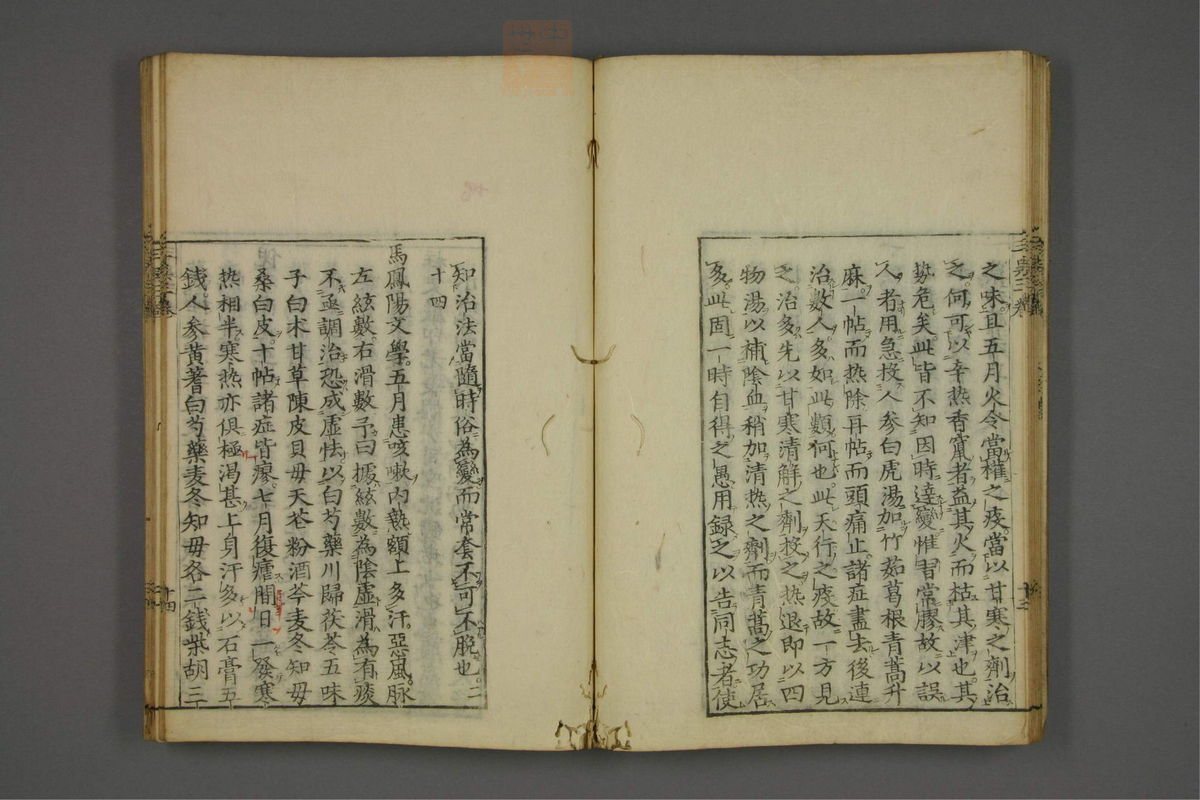 之味且五月火令當權之疫當以甘寒之劑治
之何可以辛熱香竄者益其火而枯其津也其
勢危矣此皆不知因時達變惟習常膠故以誤
人者用急投人參白虎湯加竹茹葛根青蒿升
麻一帖而熱除再帖而頭痛止諸症盡去後連
治數人多如此類何也此天行之疫故一方見
之治多先以甘寒清解之劑投之热退即以四
物湯以補陰血稍加清热之劑而青蒿之功居
多此固一時自得之愚用録之以告同志者使
知治法當隨時俗為變而常套不可不脫也二
十四
馬鳳陽文學五月患咳嗽內熱額上多汗惡風脉
左絃數右滑數予曰據絃數為陰虛滑為有痰
不亟調治恐成虛怯以白芍藥川歸茯苓五味
子白木甘草陳皮貝母天花粉酒芩麦冬知母
桑白皮十帖諸症皆瘳七月復瘧間日一發寒
热相半寒热亦俱極渴甚上身汗多以石膏五
錢人參黃耆白芍藥麦冬知母各二錢柴胡三